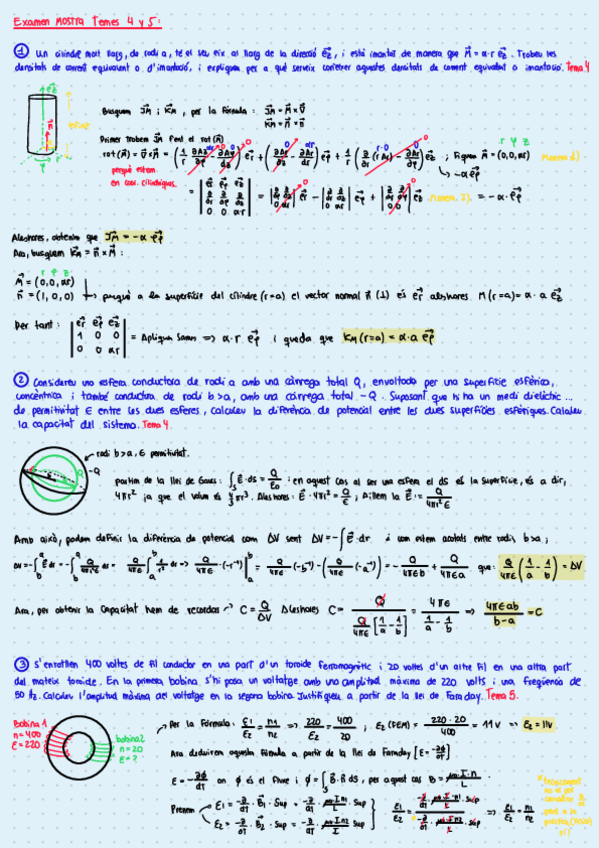 Examen MOSTRA Temes 4 y 5:
① Un cilindre molt llarg, de radi a, té el seu eix al llarg de la direcció e⃗z, i està imantat de manera que M⃗ = α·r e⃗z. Trobeu les
densitats de corrent equivalent o d'imantació, i expliqueu per a què serveix conèixer aquestes densitats de corrent equivalent o imantació. Tema 4
Busquem J⃗M i K⃗M, per la fórmula: J⃗M = M⃗ × ∇⃗
K⃗M = M⃗ × n⃗
Primer trobem J⃗M fent el rot(M⃗)
rot(M⃗) = ∇⃗ × M⃗ = (1/r ∂Az/∂φ − ∂Aφ/∂z) e⃗r + (∂Ar/∂z − ∂Az/∂r) e⃗φ + 1/r (∂/∂r (rAφ) − ∂Ar/∂φ) e⃗z ; M⃗ = (0,0,αr)
perquè estem
en coor. cilíndriques
→ −α e⃗φ
= −α e⃗φ
Aleshores, obtenim que J⃗M = −α e⃗φ
Ara, busquem K⃗M = n⃗ × M⃗ :
r φ z
M⃗ = (0,0,αr)
n⃗ = (1,0,0) → perquè a la superfície del cilindre (r=a) el vector normal n⃗ (⊥) és e⃗r aleshores M(r=a) = α·a e⃗z
Per tant: | e⃗r e⃗φ e⃗z |
| 1 0 0 | = Apliquem Sarrus ⇒ α·r e⃗φ i queda que K⃗M (r=a) = α·a e⃗φ
| 0 0 αr |
② Considereu una esfera conductora de radi a amb una càrrega total Q, envoltada per una superfície esfèrica,
concèntrica i també conductora de radi b>a, amb una càrrega total −Q. Suposant que hi ha un medi dielèctric...
de permitivitat ϵ entre les dues esferes, calculeu la diferència de potencial entre les dues superfícies esfèriques. Calculeu
la capacitat del sistema. Tema 4
radi b>a, ϵ permitivitat.
Partim de la llei de Gauss: ∫s E⃗·ds = Q/ϵ0 ; en aquest cas al ser una esfera el ds és la superfície, és a dir,
4πr² ja que el volum és 4/3 πr³. Aleshores: E⃗·4πr² = Q/ϵ ; aïllem la E⃗: = Q/4πr²ϵ
Amb això, podem definir la diferència de potencial com ΔV sent ΔV = −∫E⃗·dr i com estem acotats entre radis b>a;
ΔV = −∫ᵇₐ E⃗ dr = −∫ Q/4πr²ϵ dr = −Q/4πϵ ∫ 1/r² dr ⇒ −Q/4πϵ · (−r⁻¹) |ᵃb = −Q/4πϵ (−b⁻¹) − (−Q/4πϵ (−a⁻¹)) = −Q/4πϵb + Q/4πϵa que: Q/4πϵ (1/a − 1/b) = ΔV
Ara, per obtenir la capacitat hem de recordar C = Q/ΔV Aleshores C = Q / Q/4πϵ [1/a − 1/b] = 4πϵ / 1/a − 1/b ⇒ 4πϵab / b−a = C
③ S'enrotllen 400 voltes de fil conductor en una part d'un toroide ferromagnètic i 20 voltes d'un altre fil en una altra part
del mateix toroide. En la primera bobina s'hi posa un voltatge amb una amplitud màxima de 220 volts i una freqüència de
50 Hz. Calculeu l'amplitud màxima del voltatge en la segona bobina. Justifiqueu a partir de la llei de Faraday. Tema 5.
Bobina 1
n = 400
ε = 220
bobina 2
n = 20
ε = ?
Per la Fórmula: ε1/ε2 = n1/n2 ⇒ 220/ε2 = 400/20 ; ε2 (FEM) = 220·20/400 = 11V ⇒ ε2 = 11V
Ara deduirem aquesta fórmula a partir de la llei de Faraday [ε = −∂ϕ/∂T]
ε = −∂ϕ/∂T on ϕ és el fluxe i ϕ = ∫s B⃗·n⃗ ds, per aquest cas B = μ·I·n/L
Prenem ε1 = −∂/∂T · B⃗1 · Sup = −∂/∂T · μ·I·n1/L · Sup
ε2 = −∂/∂T · B⃗2 · Sup = −∂/∂T · μ·I·n2/L · Sup
ε1/ε2 = ⇒ ε1/ε2 = n1/n2